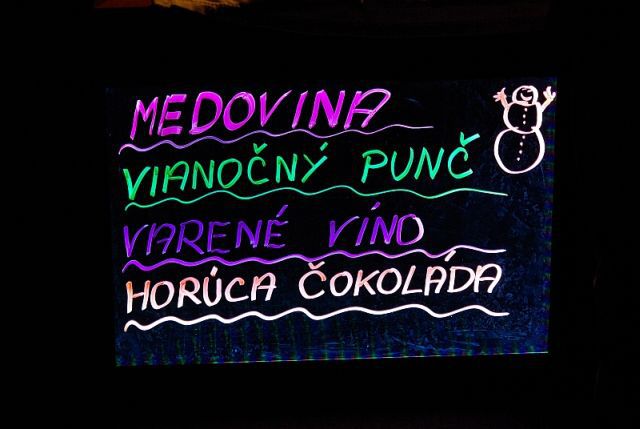 MEDOVINA
VIANOČNÝ PUNČ
VARENÉ VÍNO
HORÚCA ČOKOLÁDA